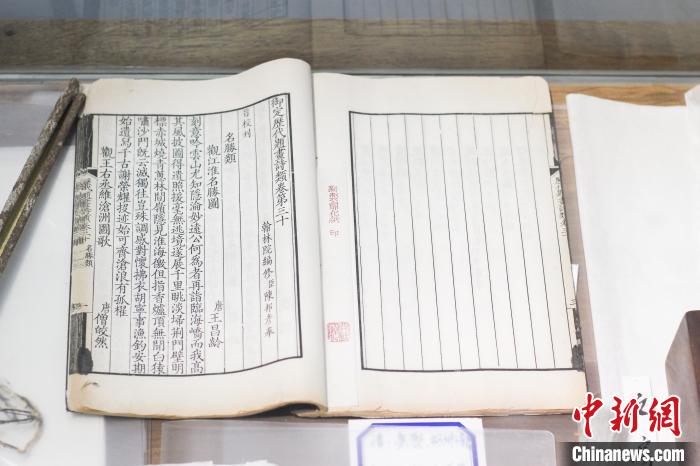 御定歷代題畫詩類卷第三十
翰林院編修臣陳邦彥奉
旨校刊
名勝類
觀江淮名勝圖
唐王昌齡
刻意吟雲山尤知隱淪妙遠公何為者再詣臨海嶠而我高
其風披圖得遺照援毫無逃境遂展千里眺淡埽荊門壁明
標赤城燒青葱林間嶺隱見淮海徼但指香爐頂無聞白猿
嘯沙門既云滅獨往豈殊調感對懷拂衣胡寧事漁釣安期
始遺舄千古謝榮耀投迹始可齊滄浪有孤櫂
觀王右丞維滄洲圖歌
唐僧皎然
名勝類
印
中新网
Chinanews.com